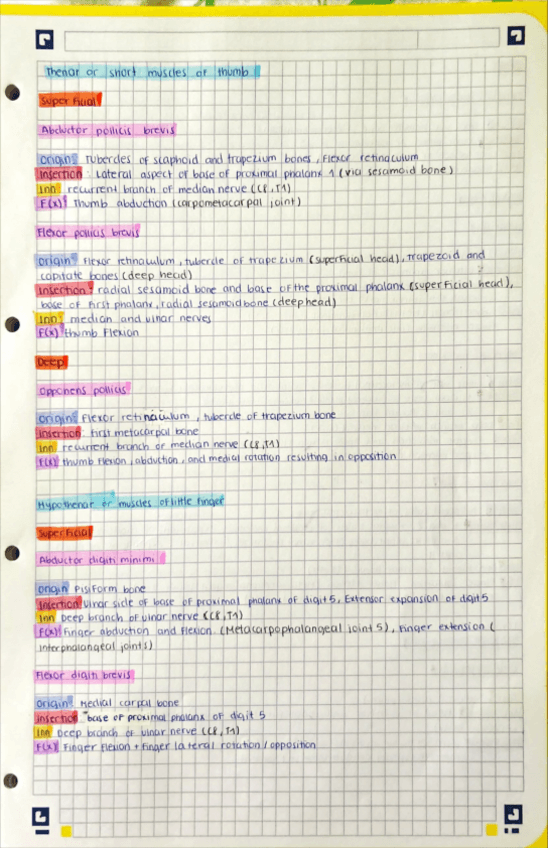 Thenar or short muscles of thumb
Superficial
Abductor pollicis brevis
Origin: Tubercles of scaphoid and trapezium bones, flexor retinaculum
Insertion: Lateral aspect of base of proximal phalanx 1 (via sesamoid bone)
Inn: recurrent branch of median nerve (C8, T1)
F(x): Thumb abduction (carpometacarpal joint)
Flexor pollicis brevis
Origin: Flexor retinaculum, tubercle of trapezium (superficial head), trapezoid and
capitate bones (deep head)
Insertion: radial sesamoid bone and base of the proximal phalanx (superficial head),
base of first phalanx, radial sesamoid bone (deep head)
Inn: median and ulnar nerves
F(x): thumb flexion
Deep
Opponens pollicis
Origin: Flexor retinaculum, tubercle of trapezium bone
Insertion: first metacarpal bone
Inn: recurrent branch or median nerve (C8, T1)
F(x): thumb flexion, abduction, and medial rotation resulting in opposition
Hypothenar or muscles of little finger
Superficial
Abductor digiti minimi
Origin: Pisiform bone
Insertion: Ulnar side of base of proximal phalanx of digit 5, Extensor expansion of digit 5
Inn: Deep branch of ulnar nerve (C8, T1)
F(x): Finger abduction and flexion (Metacarpophalangeal joint 5), Finger extension (
interphalangeal joints)
Flexor digiti brevis
Origin: Medial carpal bone
Insertion: base of proximal phalanx of digit 5
Inn: Deep branch of ulnar nerve (C8, T1)
F(x): Finger flexion + finger lateral rotation / opposition